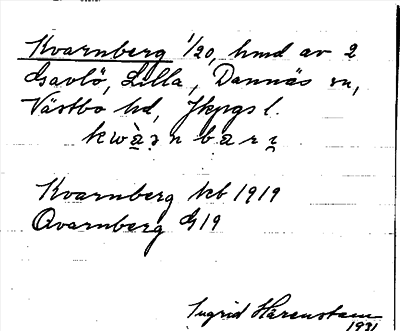 Kvarnberg 1/20, hmd av 2
Gavlö, Lilla, Dannäs sn,
Västbo hd, Jkpgs l.
kwàɲnbarɪ
Kvarnberg kb 1919
Qvarnberg G19
Ingrid Härenstam
1931